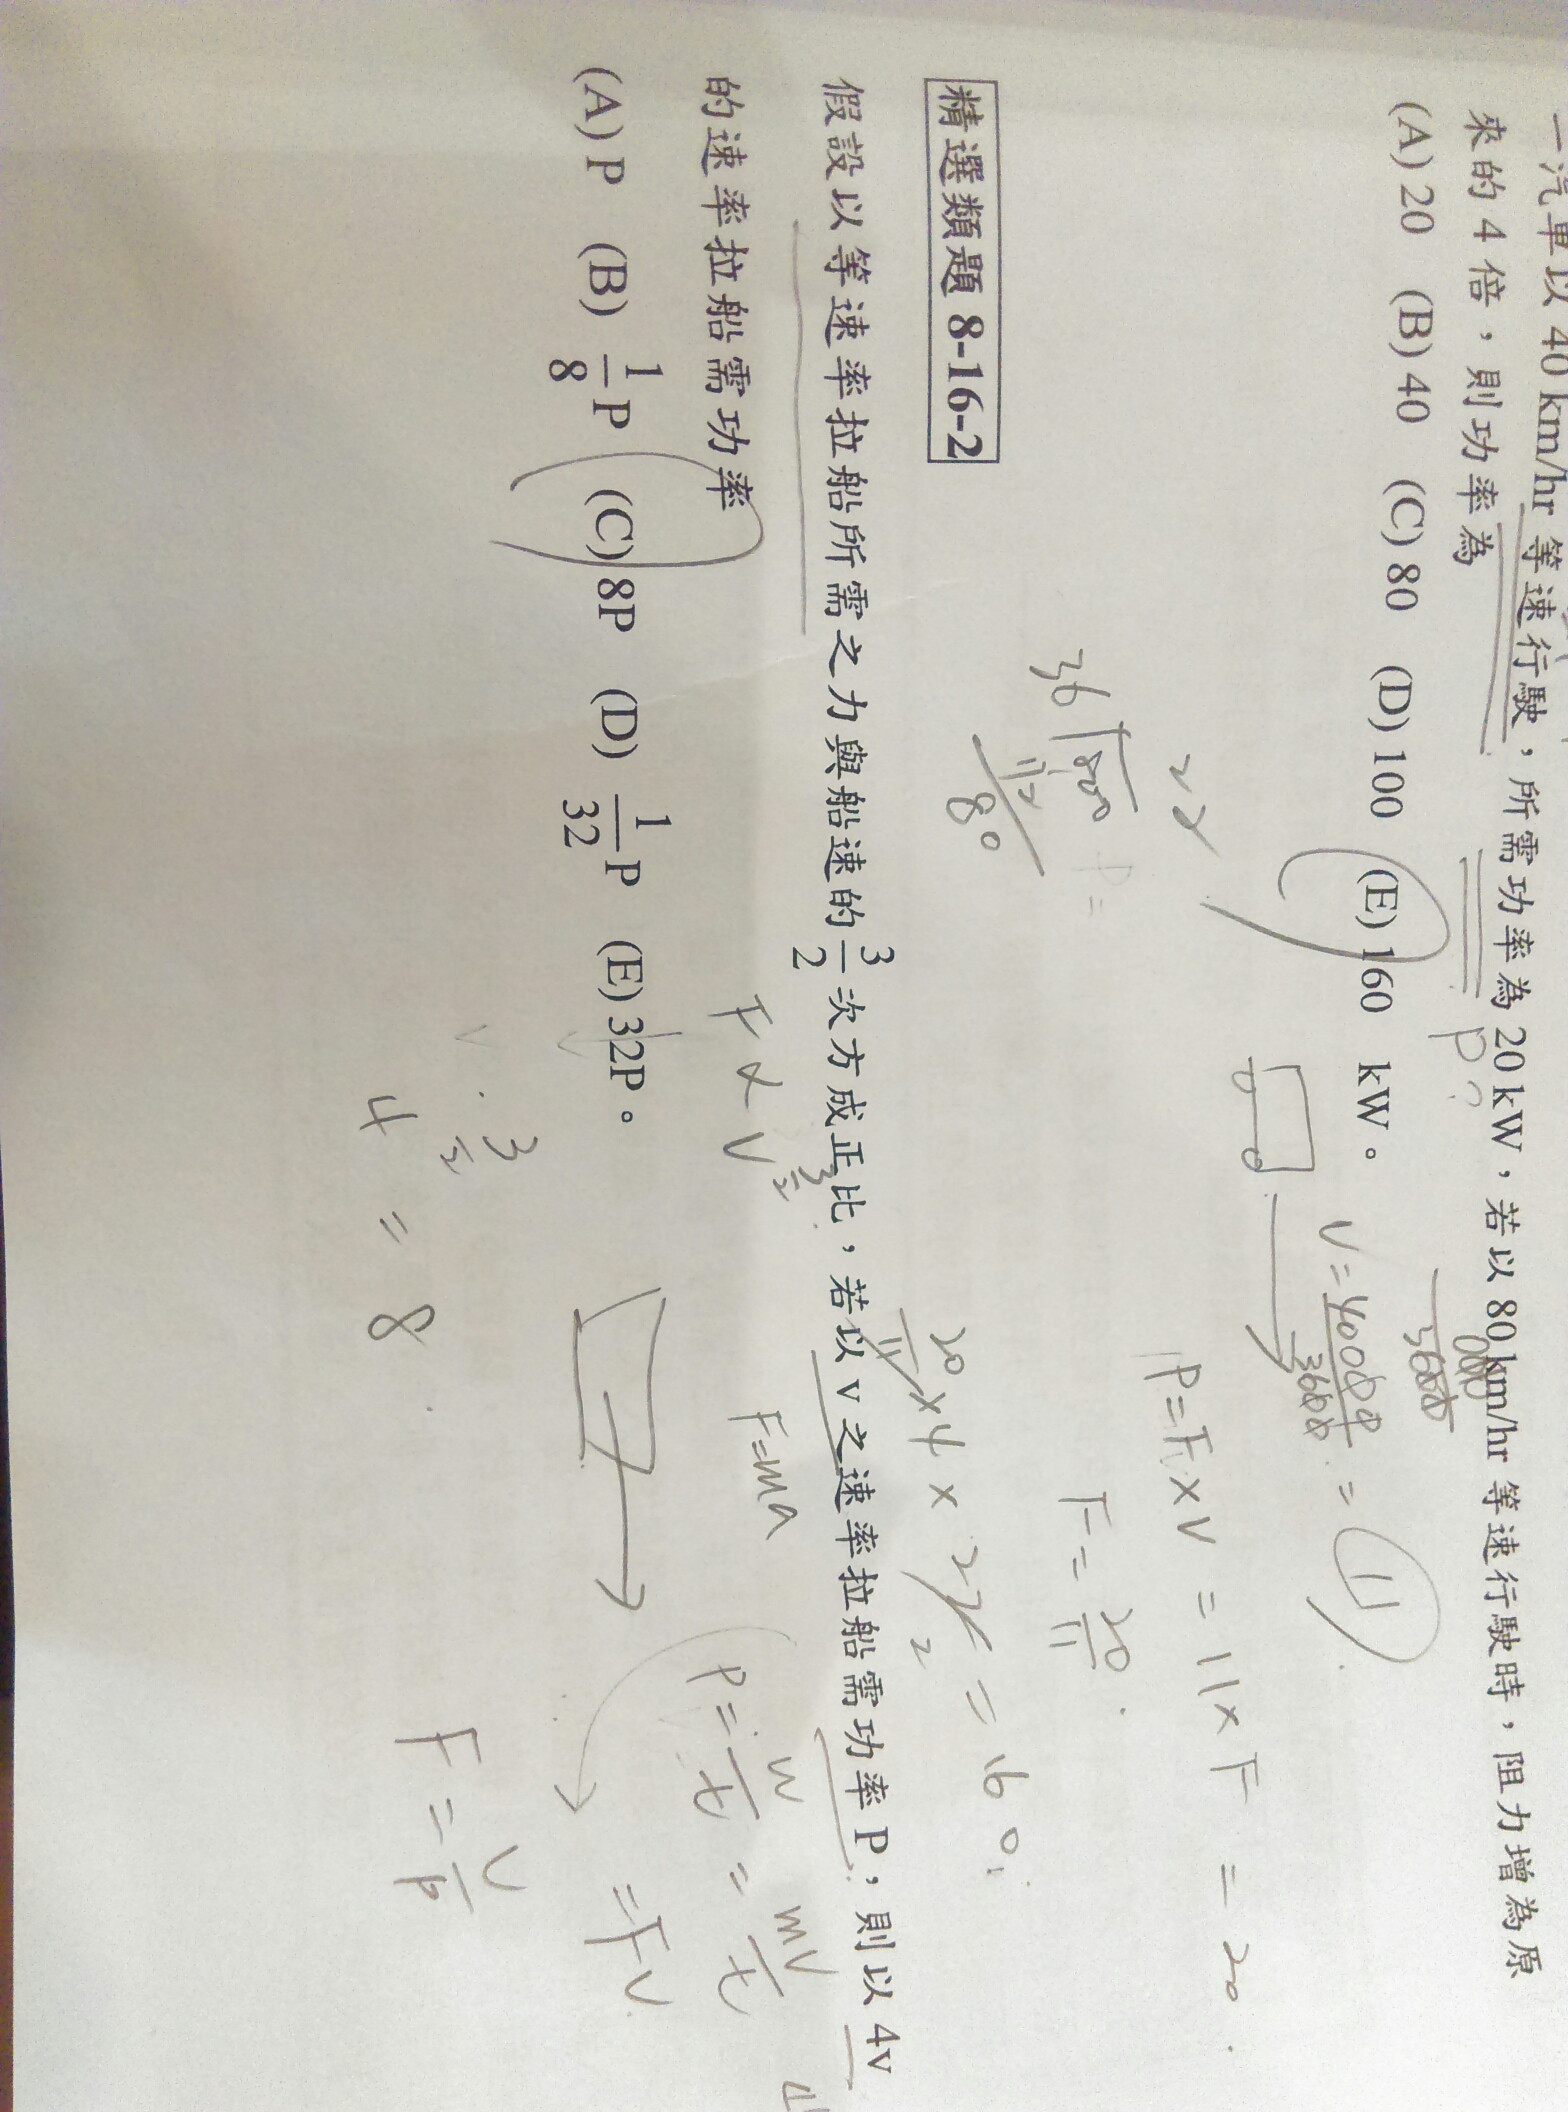 一汽車以 40 km/hr 等速行駛，所需功率為 20 kW，若以 80 km/hr 等速行駛時，阻力增為原
來的 4 倍，則功率為
(A) 20 (B) 40 (C) 80 (D) 100 (E) 160 kW。
P
V = 40000/3600 = 11
P = F × V = 11 × F = 20
22
F = 20/11
36 800
112
80
20/11 × 4 × 22 = 160
2
精選類題 8-16-2
假設以等速率拉船所需之力與船速的 3/2 次方成正比，若以 v 之速率拉船需功率 P，則以 4v
的速率拉船需功率
(A) P (B) 1/8 P (C) 8P (D) 1/32 P (E) 32P。
F ∝ V 3/2
F=ma
P = W/t = mV/t
= FV
4 3/2 = 8
F = V/P